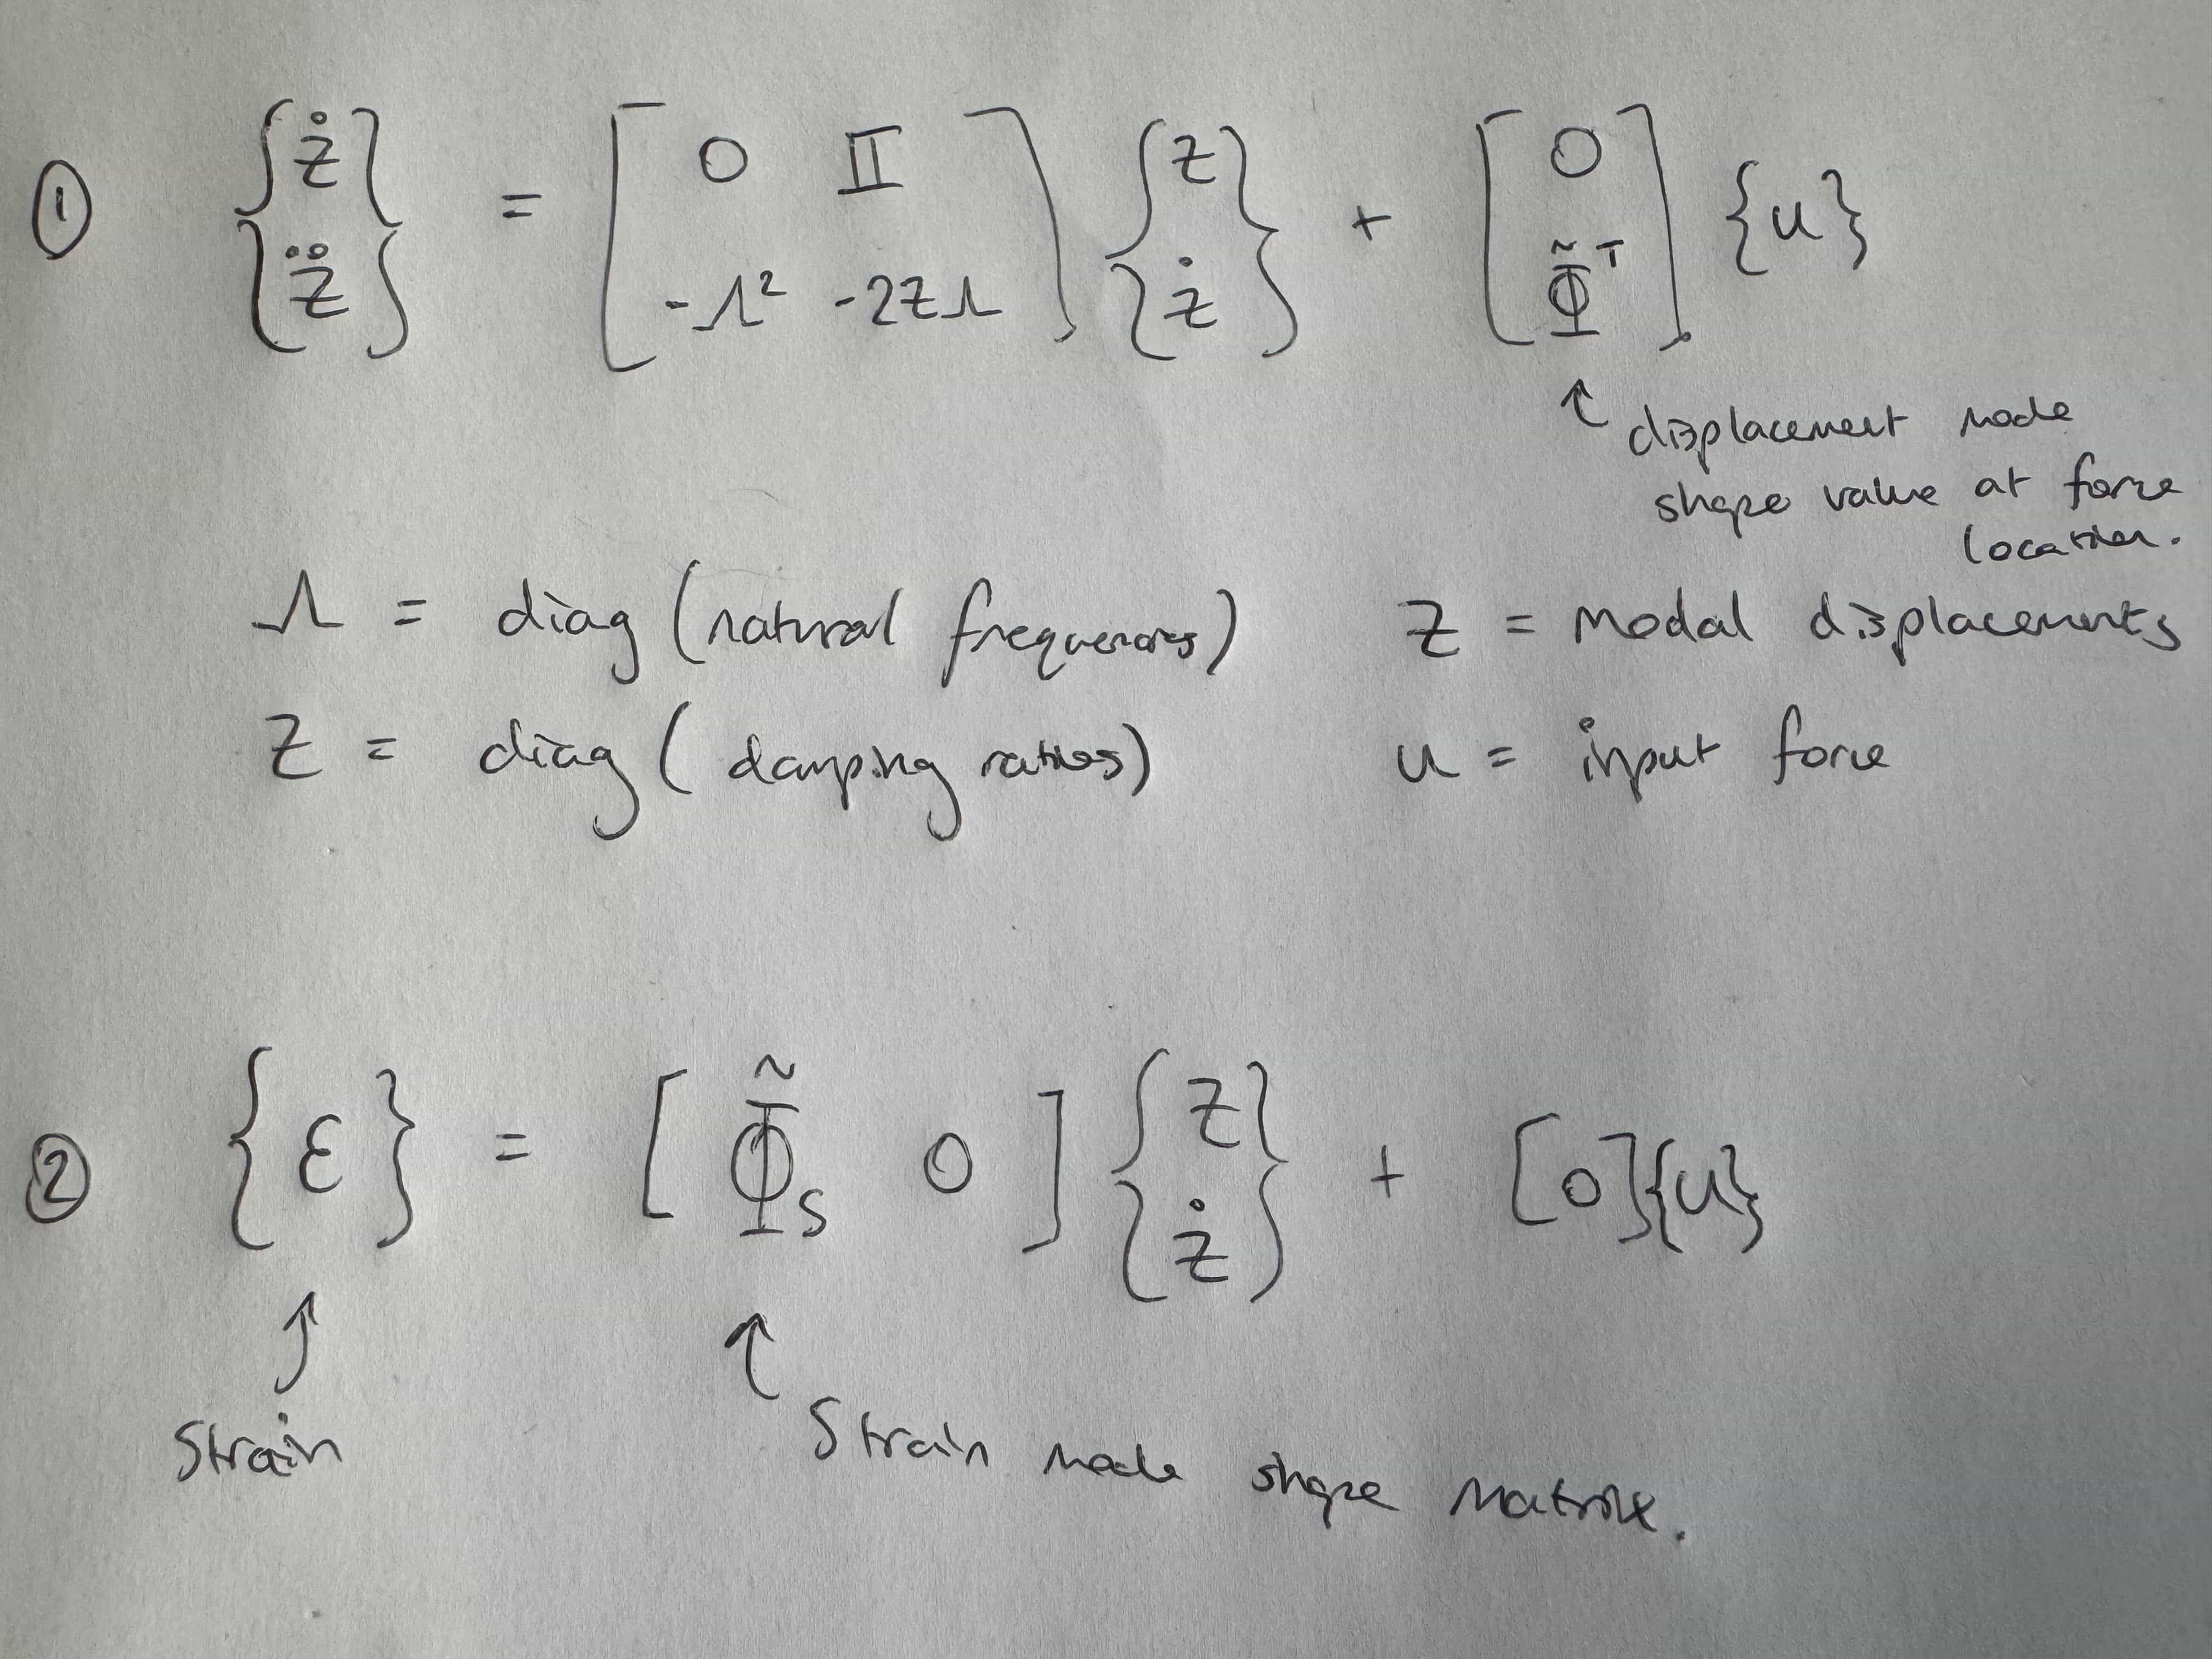 ① {ż z̈} = [0 𝕀 -Λ² -2ZΛ] {z ż} + [0 Φ̃ᵀ] {u}
↑ displacement mode
shape value at force
location.
Λ = diag (natural frequencies) z = modal displacements
Z = diag (damping ratios) u = input force
② {ε} = [Φ̃ₛ 0] {z ż} + [0]{u}
↑ ↑
Strain Strain mode shape matrix.